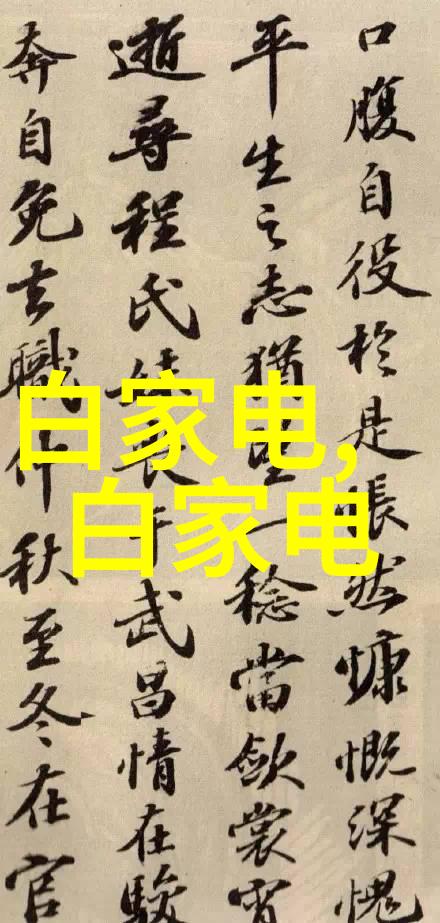 口腹自役於是悵然慷慨深愧
平生之志猶望一稔當斂裳宵
逝尋程氏妹喪于武昌情在駿
奔自免去職仲秋至冬在官
白家电,
白家电